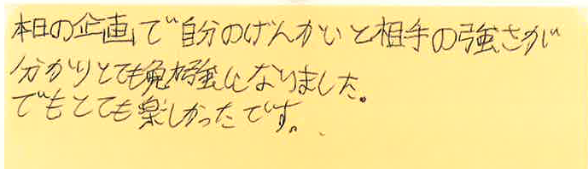 本日の企画で自分のげんかいと相手の強さが
分かりとても勉強になりました。
でもとても楽しかったです。